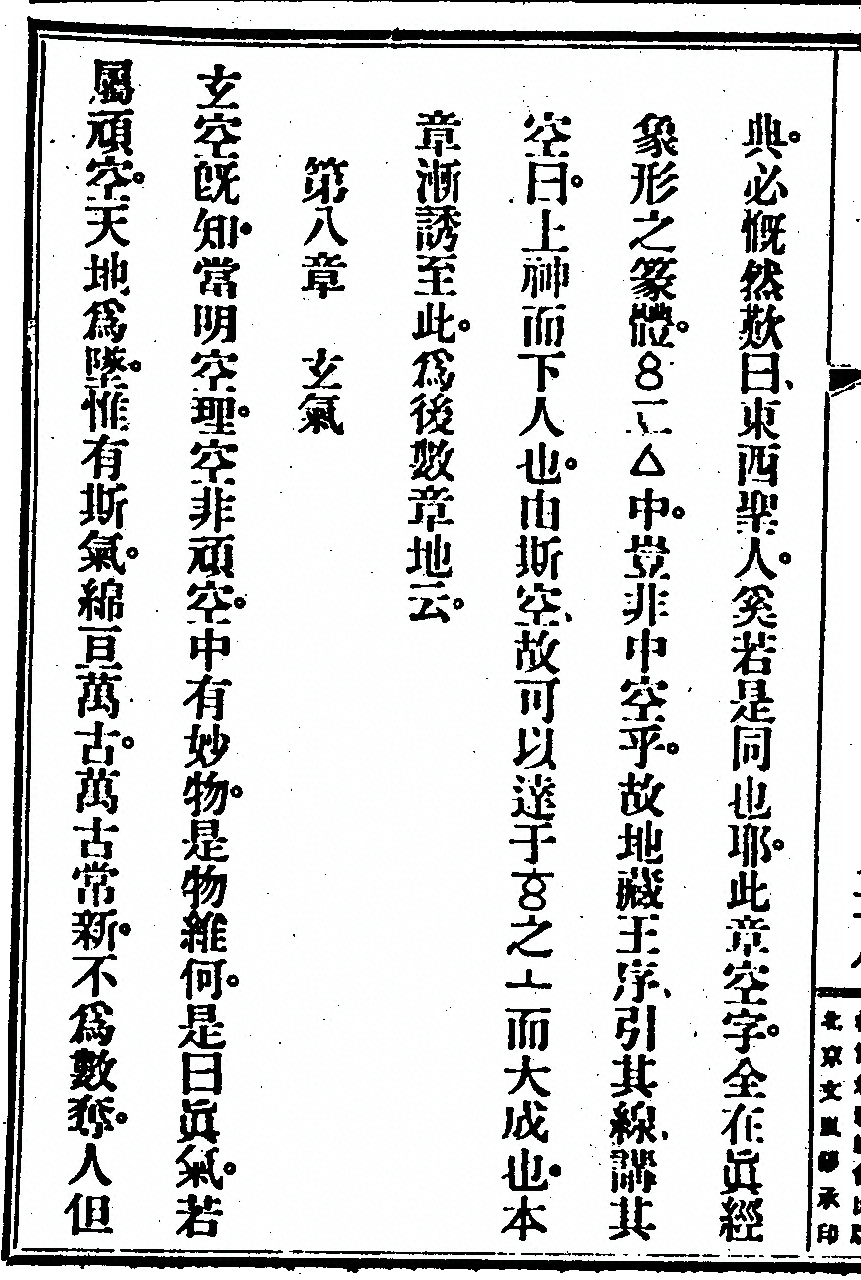 典。必慨然歎曰、東西聖人。奚若是同也耶。此章空字。全在眞經
象形之篆體。中。豈非中空乎。故地藏王序、引其線、譯其
空曰。上神而下人也。由斯空、故可以達于之而大成也。本
章漸誘至此。爲後數章地云。
第八章　玄氣
玄空旣知。當明空理。空非頑空。中有妙物。是物維何。是曰眞氣。若
屬頑空。天地爲墜。惟有斯氣。綿亘萬古。萬古常新。不爲數奪。人但
北京文嵐簃承印